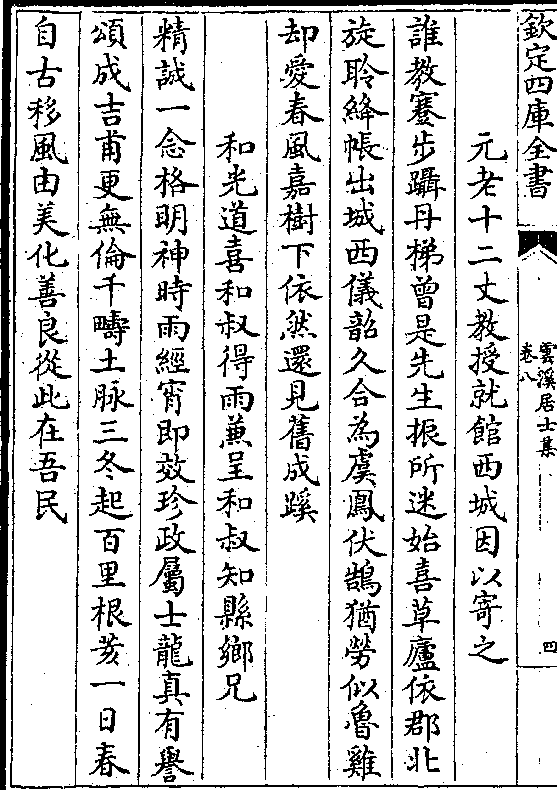 欽定四庫全書
雲溪居士集
卷八
四
元老十二丈教授就館西城因以寄之
誰教蹇步躡丹梯曾是先生振所迷始喜草廬依郡北
旋聆絳帳出城西儀韶久合為虞鳳伏鵠猶勞似魯雞
却愛春風嘉樹下依然還見舊成蹊
和光道喜和叔得雨蒹呈和叔知縣鄉兄
精誠一念格明神時雨經宵即效珍政屬士龍真有譽
頌成吉甫更無倫千疇土脉三冬起百里根荄一日春
自古移風由美化善良從此在吾民